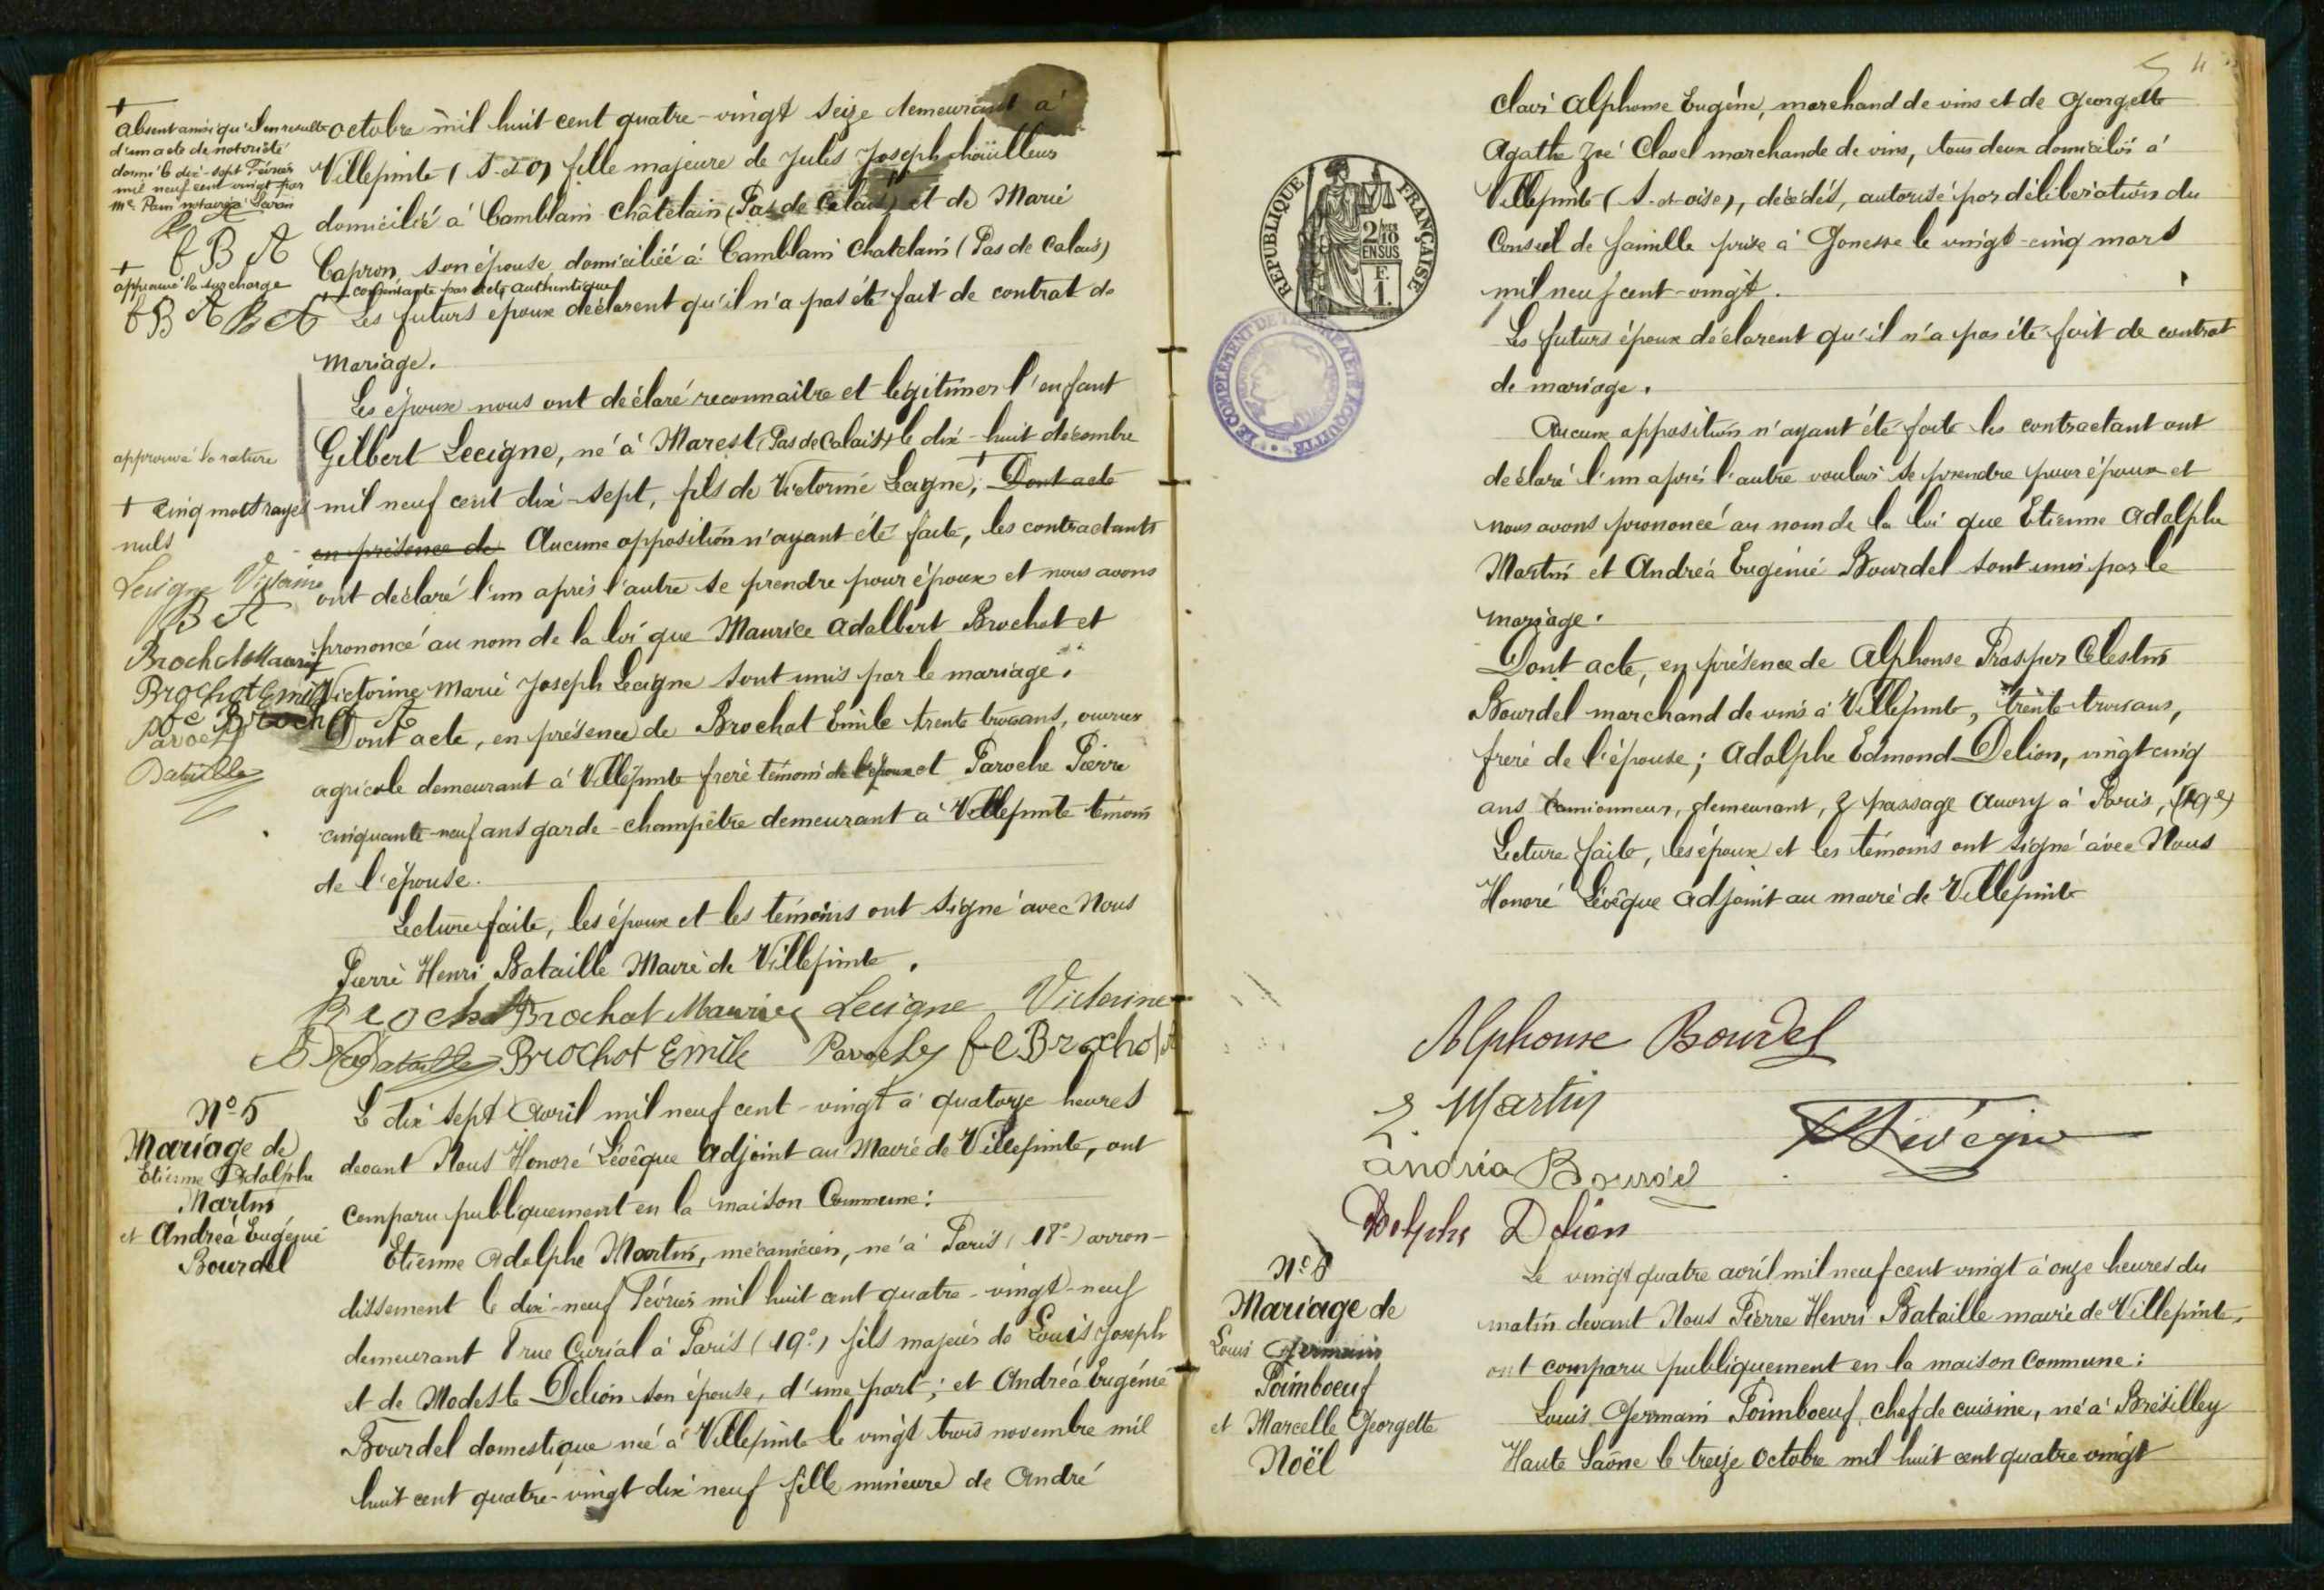 +
absent ainsi qu'il en resulte
d'un acte de notoriété
donné le dix-sept Février
mil neuf cent vingt par
Me. Pain notaire à Sevran
f B A
+
approuvé la surcharge
f B A B A
octobre mil huit cent quatre-vingt seize demeurant à
Villepinte (S-et-O) fille majeure de Jules Joseph houilleur
domicilié à Camblain Châtelain (Pas de Calais) et de Marie
Capron, son épouse domiciliée à Camblain Chatelain (Pas de Calais)
+ consentante par acte authentique
Les futurs époux déclarent qu'il n'a pas été fait de contrat de
mariage.
Les époux nous ont déclaré reconnaitre et légitimer l'enfant
Gilbert Lecigne, né à Marest (Pas de Calais) le dix-huit décembre
mil neuf cent dix-sept, fils de Victorine Lecigne, + Dont acte
en présence de Aucune opposition n'ayant été faite, les contractants
ont déclaré l'un après l'autre se prendre pour époux et nous avons
prononcé au nom de la loi que Maurice Adalbert Brochot et
Victorine Marie Joseph Lecigne sont unis par le mariage.
Dont acte, en présence de Brochot Emile trente trois ans, ouvrier
agricole demeurant à Villepinte frere témoin de l'époux et Paroche Pierre
cinquante-neuf ans garde-champêtre demeurant à Villepinte témoin
de l'épouse.
Lecture faite, les époux et les témoins ont signé avec Nous
Pierre Henri Bataille Maire de Villepinte.
approuvé la rature
+ cinq mots rayés
nuls
Lecigne Victorine
B A
Brochot Maurice
Brochot Emile
fe Broch
Paroche
Bataille
Brochot Brochot Maurice Lecigne Victorine
Bataille Brochot Emile Paroche fe Brochot
No 5
Mariage de
Etienne Adolphe
Martin
et Andréa Eugénie
Bourdel
Le dix sept Avril mil neuf cent-vingt à quatorze heures
devant Nous Honoré Lévêque Adjoint au Maire de Villepinte, ont
comparu publiquement en la maison Commune:
Etienne Adolphe Martin, mécanicien, né à Paris (18e) arron-
dissement le dix-neuf Février mil huit cent quatre-vingt-neuf
demeurant 8 rue Curial à Paris (19e) fils majeur de Louis Joseph
et de Modeste Delion son épouse, d'une part; et Andréa Eugénie
Bourdel domestique née à Villepinte le vingt trois novembre mil
huit cent quatre-vingt dix neuf fille mineure de André
REPUBLIQUE FRANÇAISE
2/10
EN SUS
F.
1.
LE COMPLEMENT DE ACQUITTÉ
clovis Alphonse Eugène, marchand de vins et de Georgette
Agathe Zoé Clavel marchande de vins, tous deux domiciliés à
Villepinte (S.-et-oise), décédés, autorisé par délibération du
Conseil de famille prise à Gonesse le vingt-cinq mars
mil neuf cent-vingt.
Les futurs époux déclarent qu'il n'a pas été fait de contrat
de mariage.
Aucune opposition n'ayant été faite les contractant ont
déclaré l'un après l'autre vouloir se prendre pour époux et
nous avons prononcé au nom de la loi que Etienne Adolphe
Martin et Andréa Eugénie Bourdel sont unis par le
mariage.
Dont acte, en présence de Alphonse Prosper Celestin
Bourdel marchand de vins à Villepinte, trente-trois ans,
frere de l'épouse; Adolphe Edmond Delion, vingt cinq
ans camionneur, demeurant, 2 passage Auvry à Paris, (19e)
Lecture faite, les époux et les témoins ont signé avec Nous
Honoré Lévêque Adjoint au maire de Villepinte
Alphonse Bourdel
E. Martin
Lévêque
andréa Bourdel
Adolphe Delion
No 6
Mariage de
Louis Germain
Poimboeuf
et Marcelle Georgette
Noël
Le vingt quatre avril mil neuf cent vingt à onze heures du
matin devant Nous Pierre Henri Bataille maire de Villepinte,
ont comparu publiquement en la maison Commune:
Louis Germain Poimboeuf, chef de cuisine, né à Brésilley
Haute Saône le treize Octobre mil huit cent quatre vingt